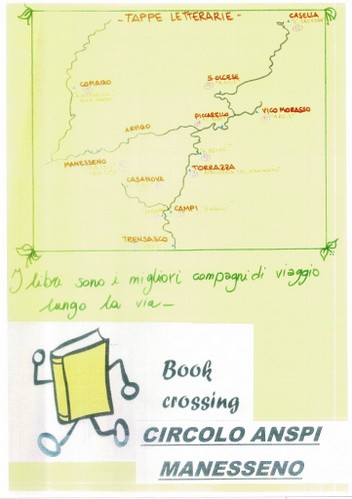 - TAPPE LETTERARIE -
CASELLA
COMAGO
S. OLCESE
PICCARELLO
VICO MORASSO
ARVIGO
MANESSENO
CASANOVA
TORRAZZA
CAMPI
TRENSASCO
I libri sono i migliori compagni di viaggio
lungo la via_
Book
crossing
CIRCOLO ANSPI
MANESSENO